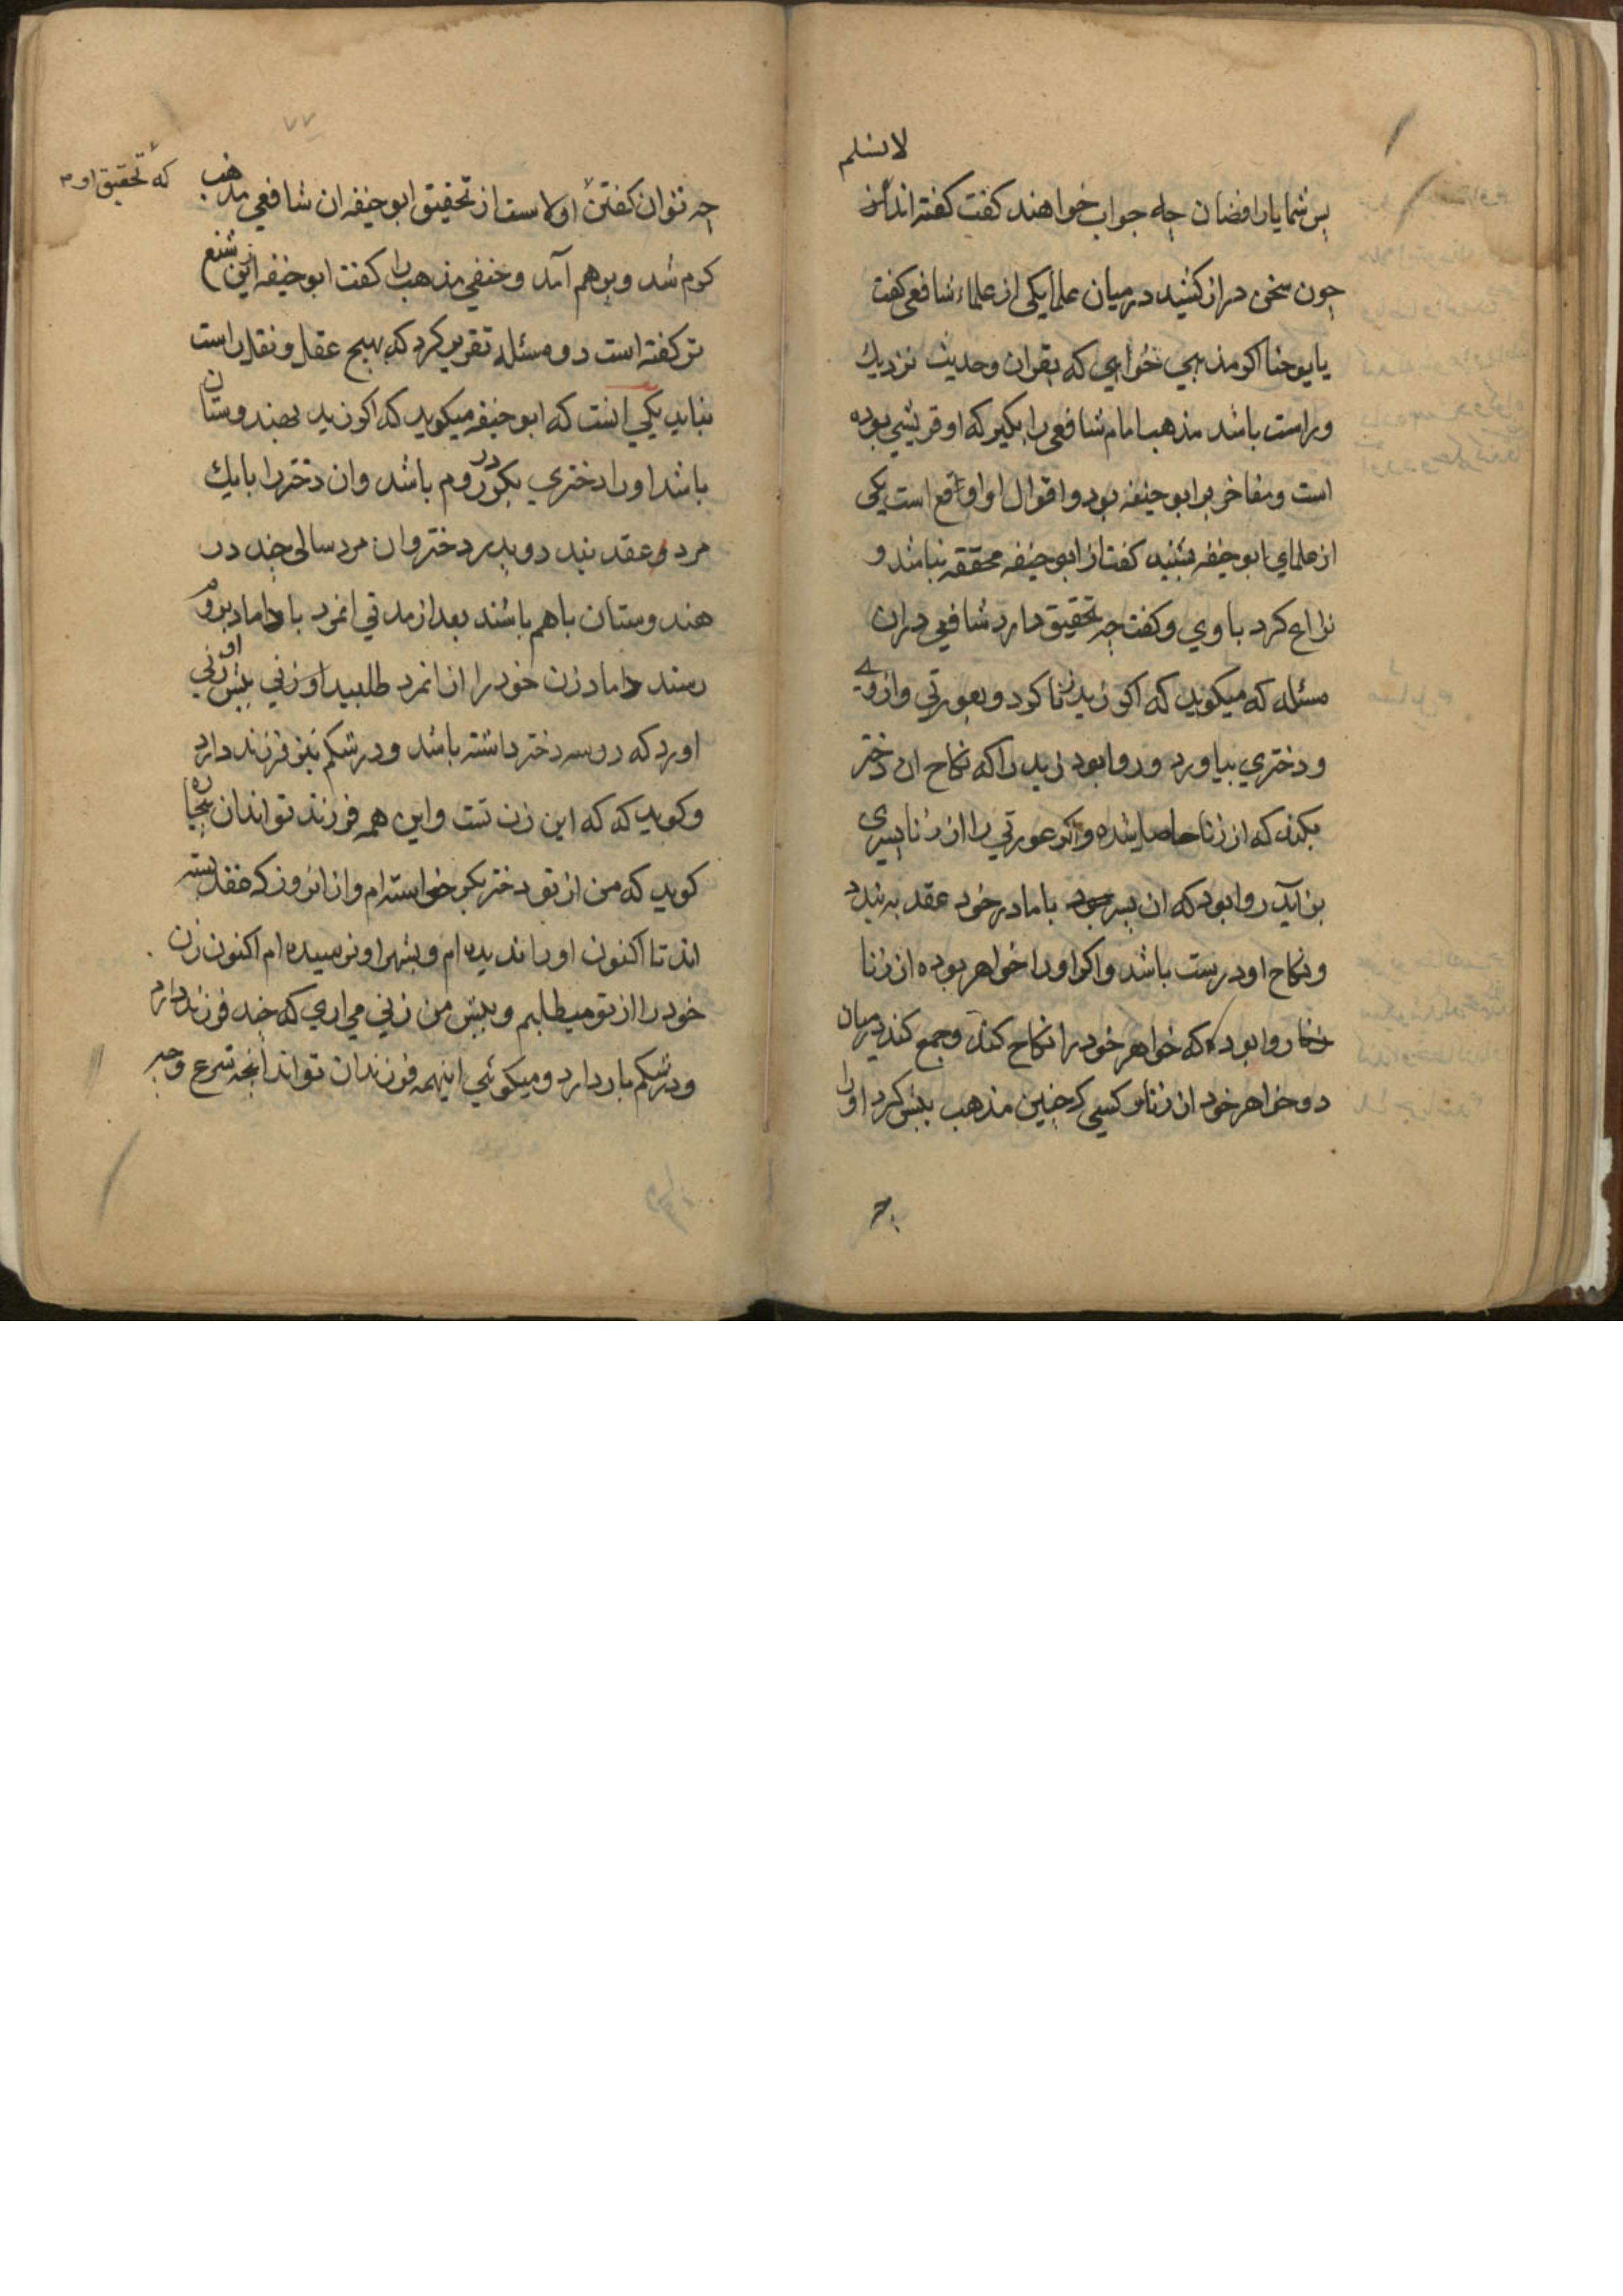 لا نسلم
پس شما یا رافضان چه جواب خواهند کفت کفته اند از
چون سخن دراز کشید درمیان علما یکی از علماء شافعی کفت
یا یوحنا اکر مذهبی خواهی که بقران وحدیث نزدیك
وراست باشد مذهب امام شافعی را بکیر که او قریشی بوده
است ومفاخر بر ابو حنیفه بود واقوال او اوقع است یکی
از علمای ابو حنیفه شنید کفت از ابو حنیفه محققه نباشد و
نزاع کرد با وی وکفت چه تحقیق دارد شافعی دران
مسئله که میکوید که اکر زید زنا کرد و بعورتی وازوی
ودختری بیاورد وروا بود زید را که نکاح ان دختر
بکند که از زنا حاصل شده واکر عورتی را از زنا پسری
بزاید روا بود که ان پسر با مادر خود عقد به بندد
ونکاح او درست باشد واکر او را خواهر بوده از زنا
روا بوده که خواهر خود را نکاح کند وجمع کند درمیان
دو خواهر خود از زنا کسی که چنین مذهب پیش کرد او را
۷۷
که تحقیق او
چه توان کفتن اولاست از تحقیق ابو حنیفه ان شافعی مذهب
کرم شد وبرهم آمد وحنفی مذهب را کفت ابو حنیفه ازین شنیع
تر کفته است دو مسئله تقریر کرد که بهیچ عقل ونقل راست
نیاید یکی انست که ابو حنیفه میکوید که اکر زید بهندوستان
باشد او را دختری بکر در روم باشد وان دختر را بایك
مرد عقد بندد وپدر دختر وان مرد سالی چند در
هندوستان باهم باشند بعد از مدتی انمرد با داماد بروم
رسند داماد زن خود را از انمرد طلبید او زنی پیش او
اورد که دو سه دختر داشته باشد ودر شکم نیز فرزند دارد
وکوید که که این زن تست واین همه فرزند تو اند ان بیچاره
کوید که من از تو دختر بکر خواسته ام وازان روز که عقد بسته
اند تا اکنون او را ندیده ام وبشهر او نرسیده ام اکنون زن
خود را از تو میطلبم وپیش من زنی می اری که چند فرزند دارد
ودر شکم بار دارد ومیکوئی اینهمه فرزندان تو اند انچه شرع